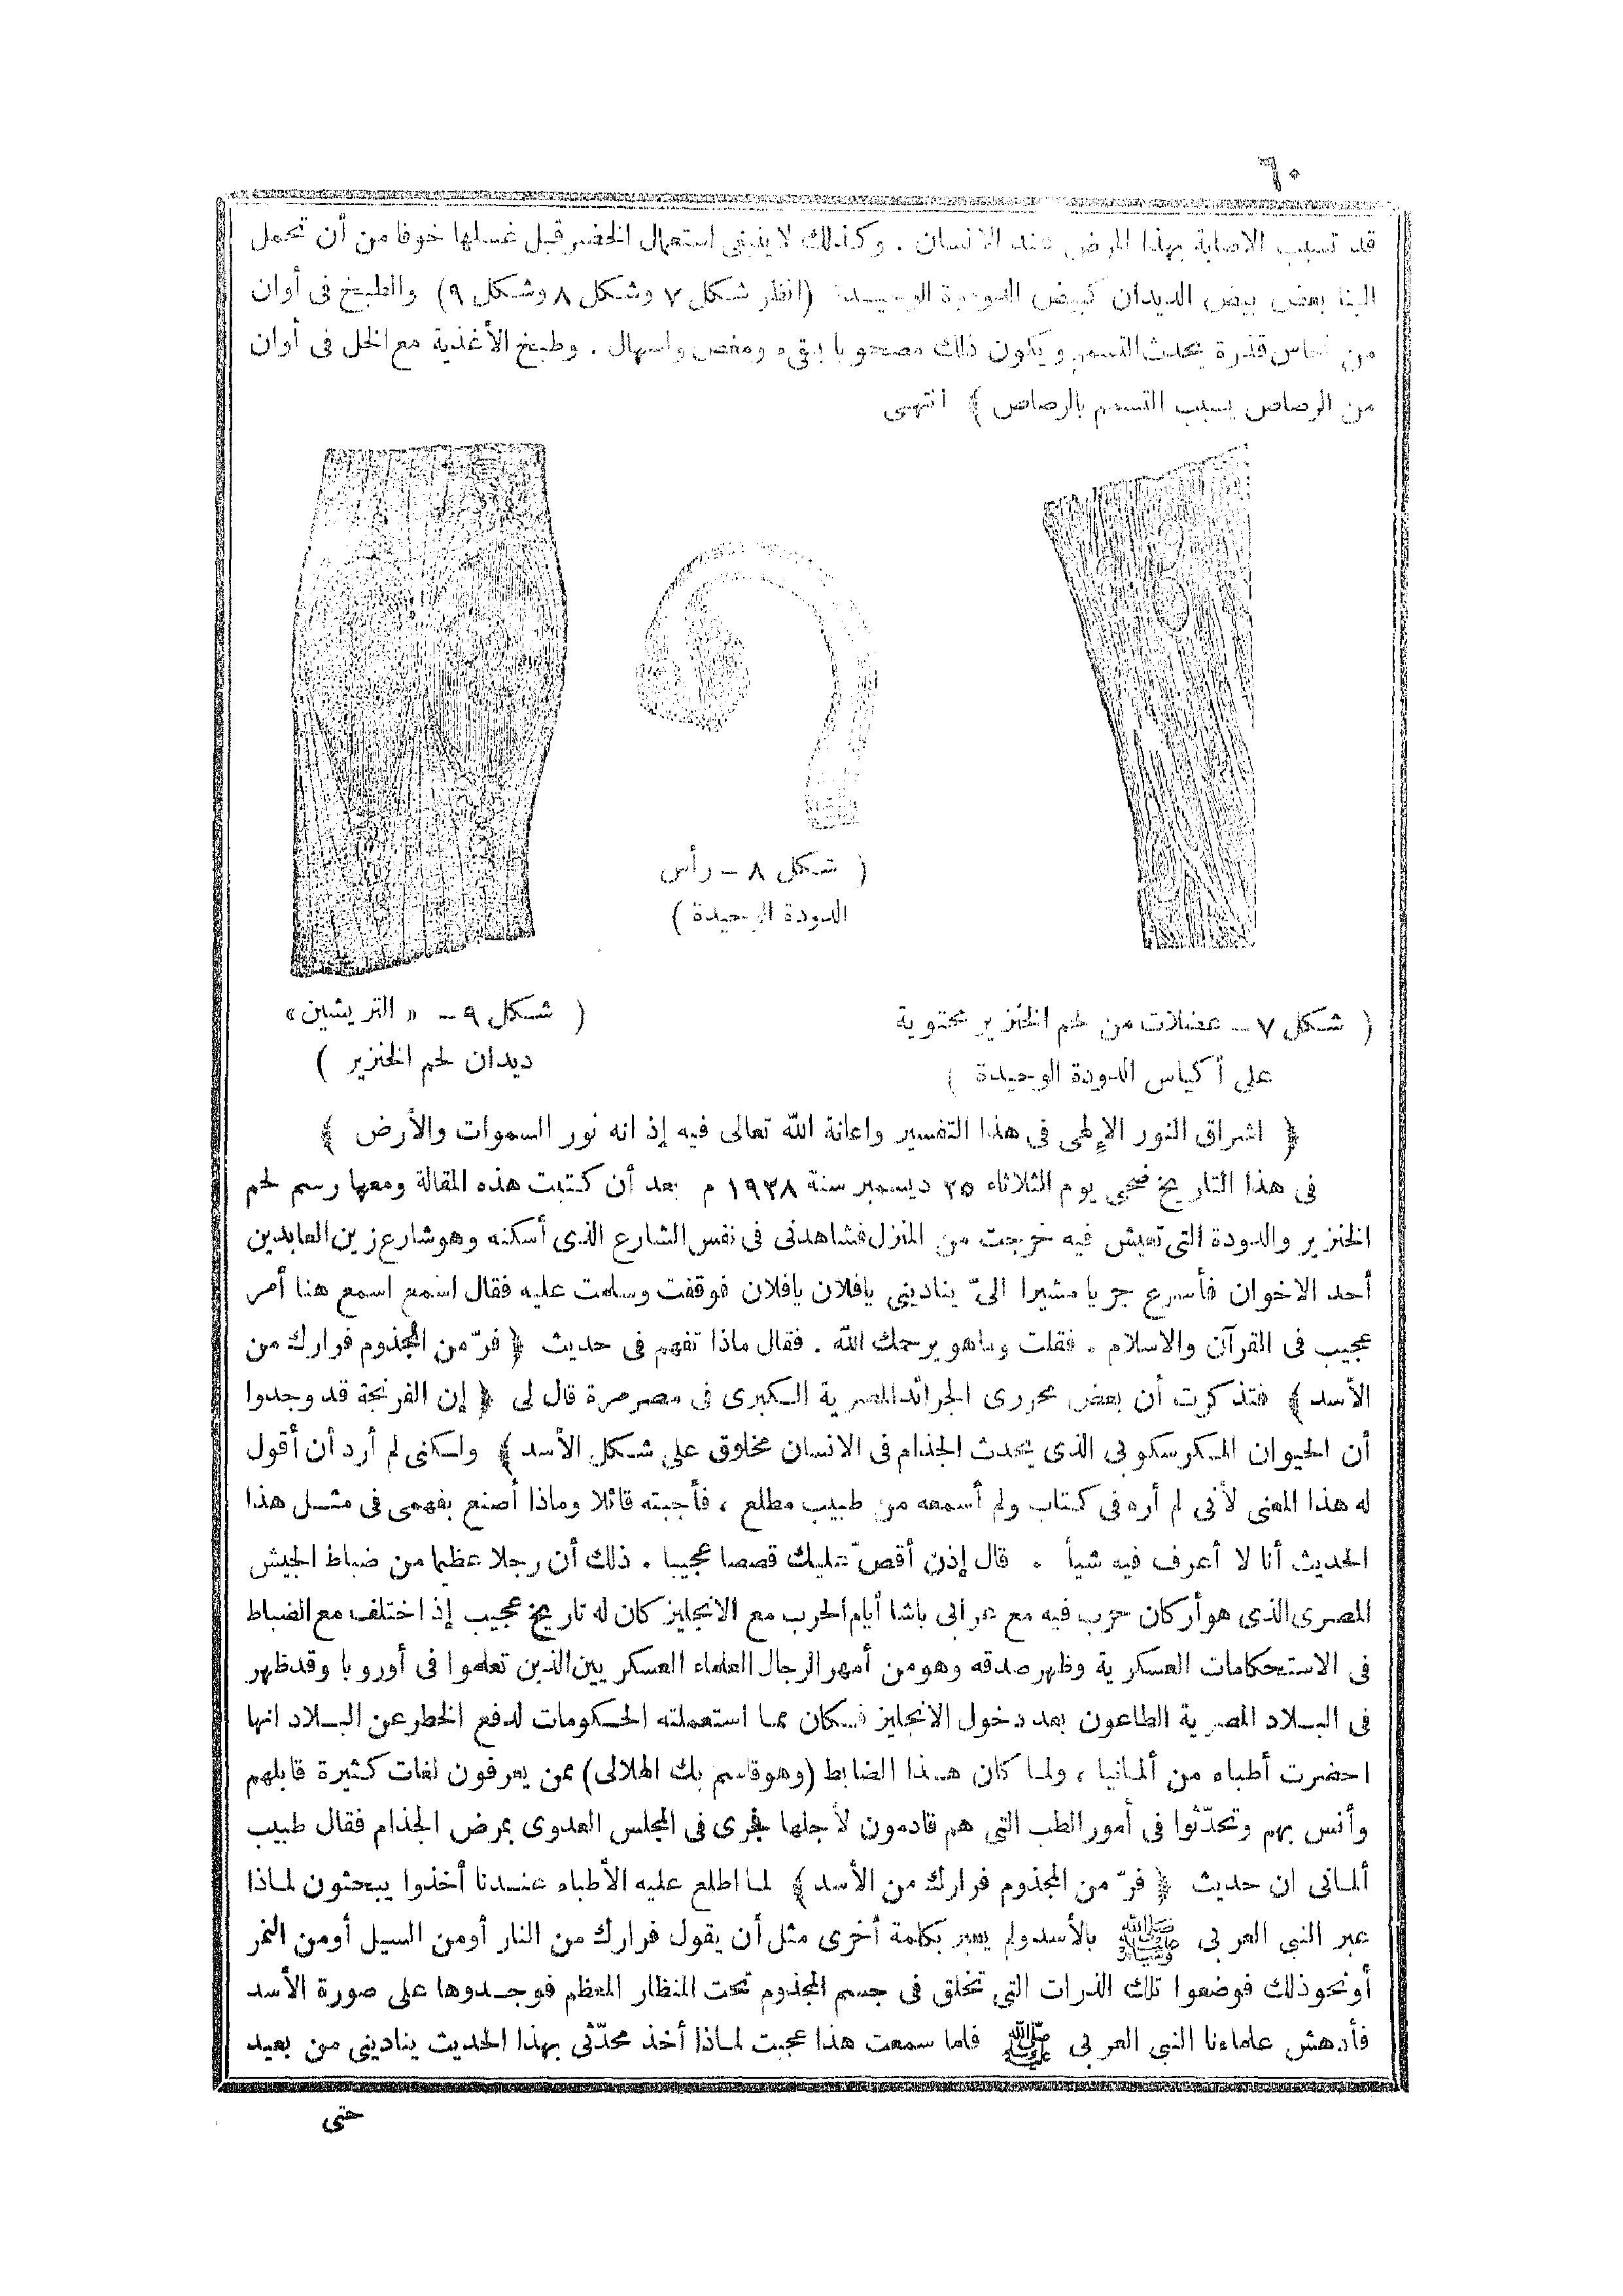 ٦٠
قد تسبب الاصابة بهذا المرض عند الانسان . وكذلك لا ينبغى استعمال الخضر قبل غسلها خوفا من أن تحمل
الينا بعض بيض الديدان كبيض الدودة الوحيدة (انظر شكل ٧ وشكل ٨ وشكل ٩) والطبخ فى أوان
من نحاس قذرة يحدث التسمم ويكون ذلك مصحوبا بقىء ومغص واسهال . وطبخ الأغذية مع الخل فى أوان
من الرصاص يسبب التسمم بالرصاص ﴾ انتهى
( شكل ٨ - رأس
الدودة الوحيدة )
( شكل ٧ - عضلات من لحم الخنزير محتوية
على أكياس الدودة الوحيدة )
( شكل ٩ - « التريشين »
ديدان لحم الخنزير )
﴿ اشراق النور الإلهى فى هذا التفسير واعانة الله تعالى فيه إذ انه نور السموات والأرض ﴾
فى هذا التاريخ ضحى يوم الثلاثاء ٢٥ ديسمبر سنة ١٩٢٨ م بعد أن كتبت هذه المقالة ومعها رسم لحم
الخنزير والدودة التى تعيش فيه خرجت من المنزل فشاهدنى فى نفس الشارع الذى أسكنه وهو شارع زين العابدين
أحد الاخوان فأسرع جريا مشيرا الىّ ينادينى يافلان يافلان فوقفت وسلمت عليه فقال اسمع اسمع هنا أمر
عجيب فى القرآن والاسلام . فقلت وماهو يرحمك الله . فقال ماذا تفهم فى حديث ﴿ فرّ من المجذوم فرارك من
الأسد ﴾ فتذكرت أن بعض محررى الجرائد المصرية الكبرى فى مصر مرة قال لى ﴿ إن الفرنجة قد وجدوا
أن الحيوان المكرسكوبى الذى يحدث الجذام فى الانسان مخلوق على شكل الأسد ﴾ ولكنى لم أرد أن أقول
له هذا المعنى لأنى لم أره فى كتاب ولم أسمعه من طبيب مطلع ، فأجبته قائلا وماذا أصنع بفهمى فى مثل هذا
الحديث أنا لا أعرف فيه شيأ . قال إذن أقصّ عليك قصصا عجيبا . ذلك أن رجلا عظيما من ضباط الجيش
المصرى الذى هو أركان حرب فيه مع عرابى باشا أيام الحرب مع الانجليز كان له تاريخ عجيب إذ اختلف مع الضباط
فى الاستحكامات العسكرية وظهر صدقه وهو من أمهر الرجال العلماء العسكريين الذين تعلموا فى أوروبا وقد ظهر
فى البلاد المصرية الطاعون بعد دخول الانجليز فكان مما استعملته الحكومات لدفع الخطر عن البلاد انها
احضرت أطباء من ألمانيا ، ولما كان هذا الضابط (وهو قاسم بك الهلالى) ممن يعرفون لغات كثيرة قابلهم
وأنس بهم وتحدّثوا فى أمور الطب التى هم قادمون لأجلها فجرى فى المجلس العدوى بمرض الجذام فقال طبيب
ألمانى ان حديث ﴿ فرّ من المجذوم فرارك من الأسد ﴾ لما اطلع عليه الأطباء عندنا أخذوا يبحثون لماذا
عبر النبى العربى ﷺ بالأسد ولم يعبر بكلمة أخرى مثل أن يقول فرارك من النار أومن السيل أومن النمر
أونحو ذلك فوضعوا تلك الذرات التى تخلق فى جسم المجذوم تحت المنظار المعظم فوجدوها على صورة الأسد
فأدهش علماءنا النبى العربى ﷺ فلما سمعت هذا عجبت لماذا أخذ محدّثى بهذا الحديث ينادينى من بعيد
حتى